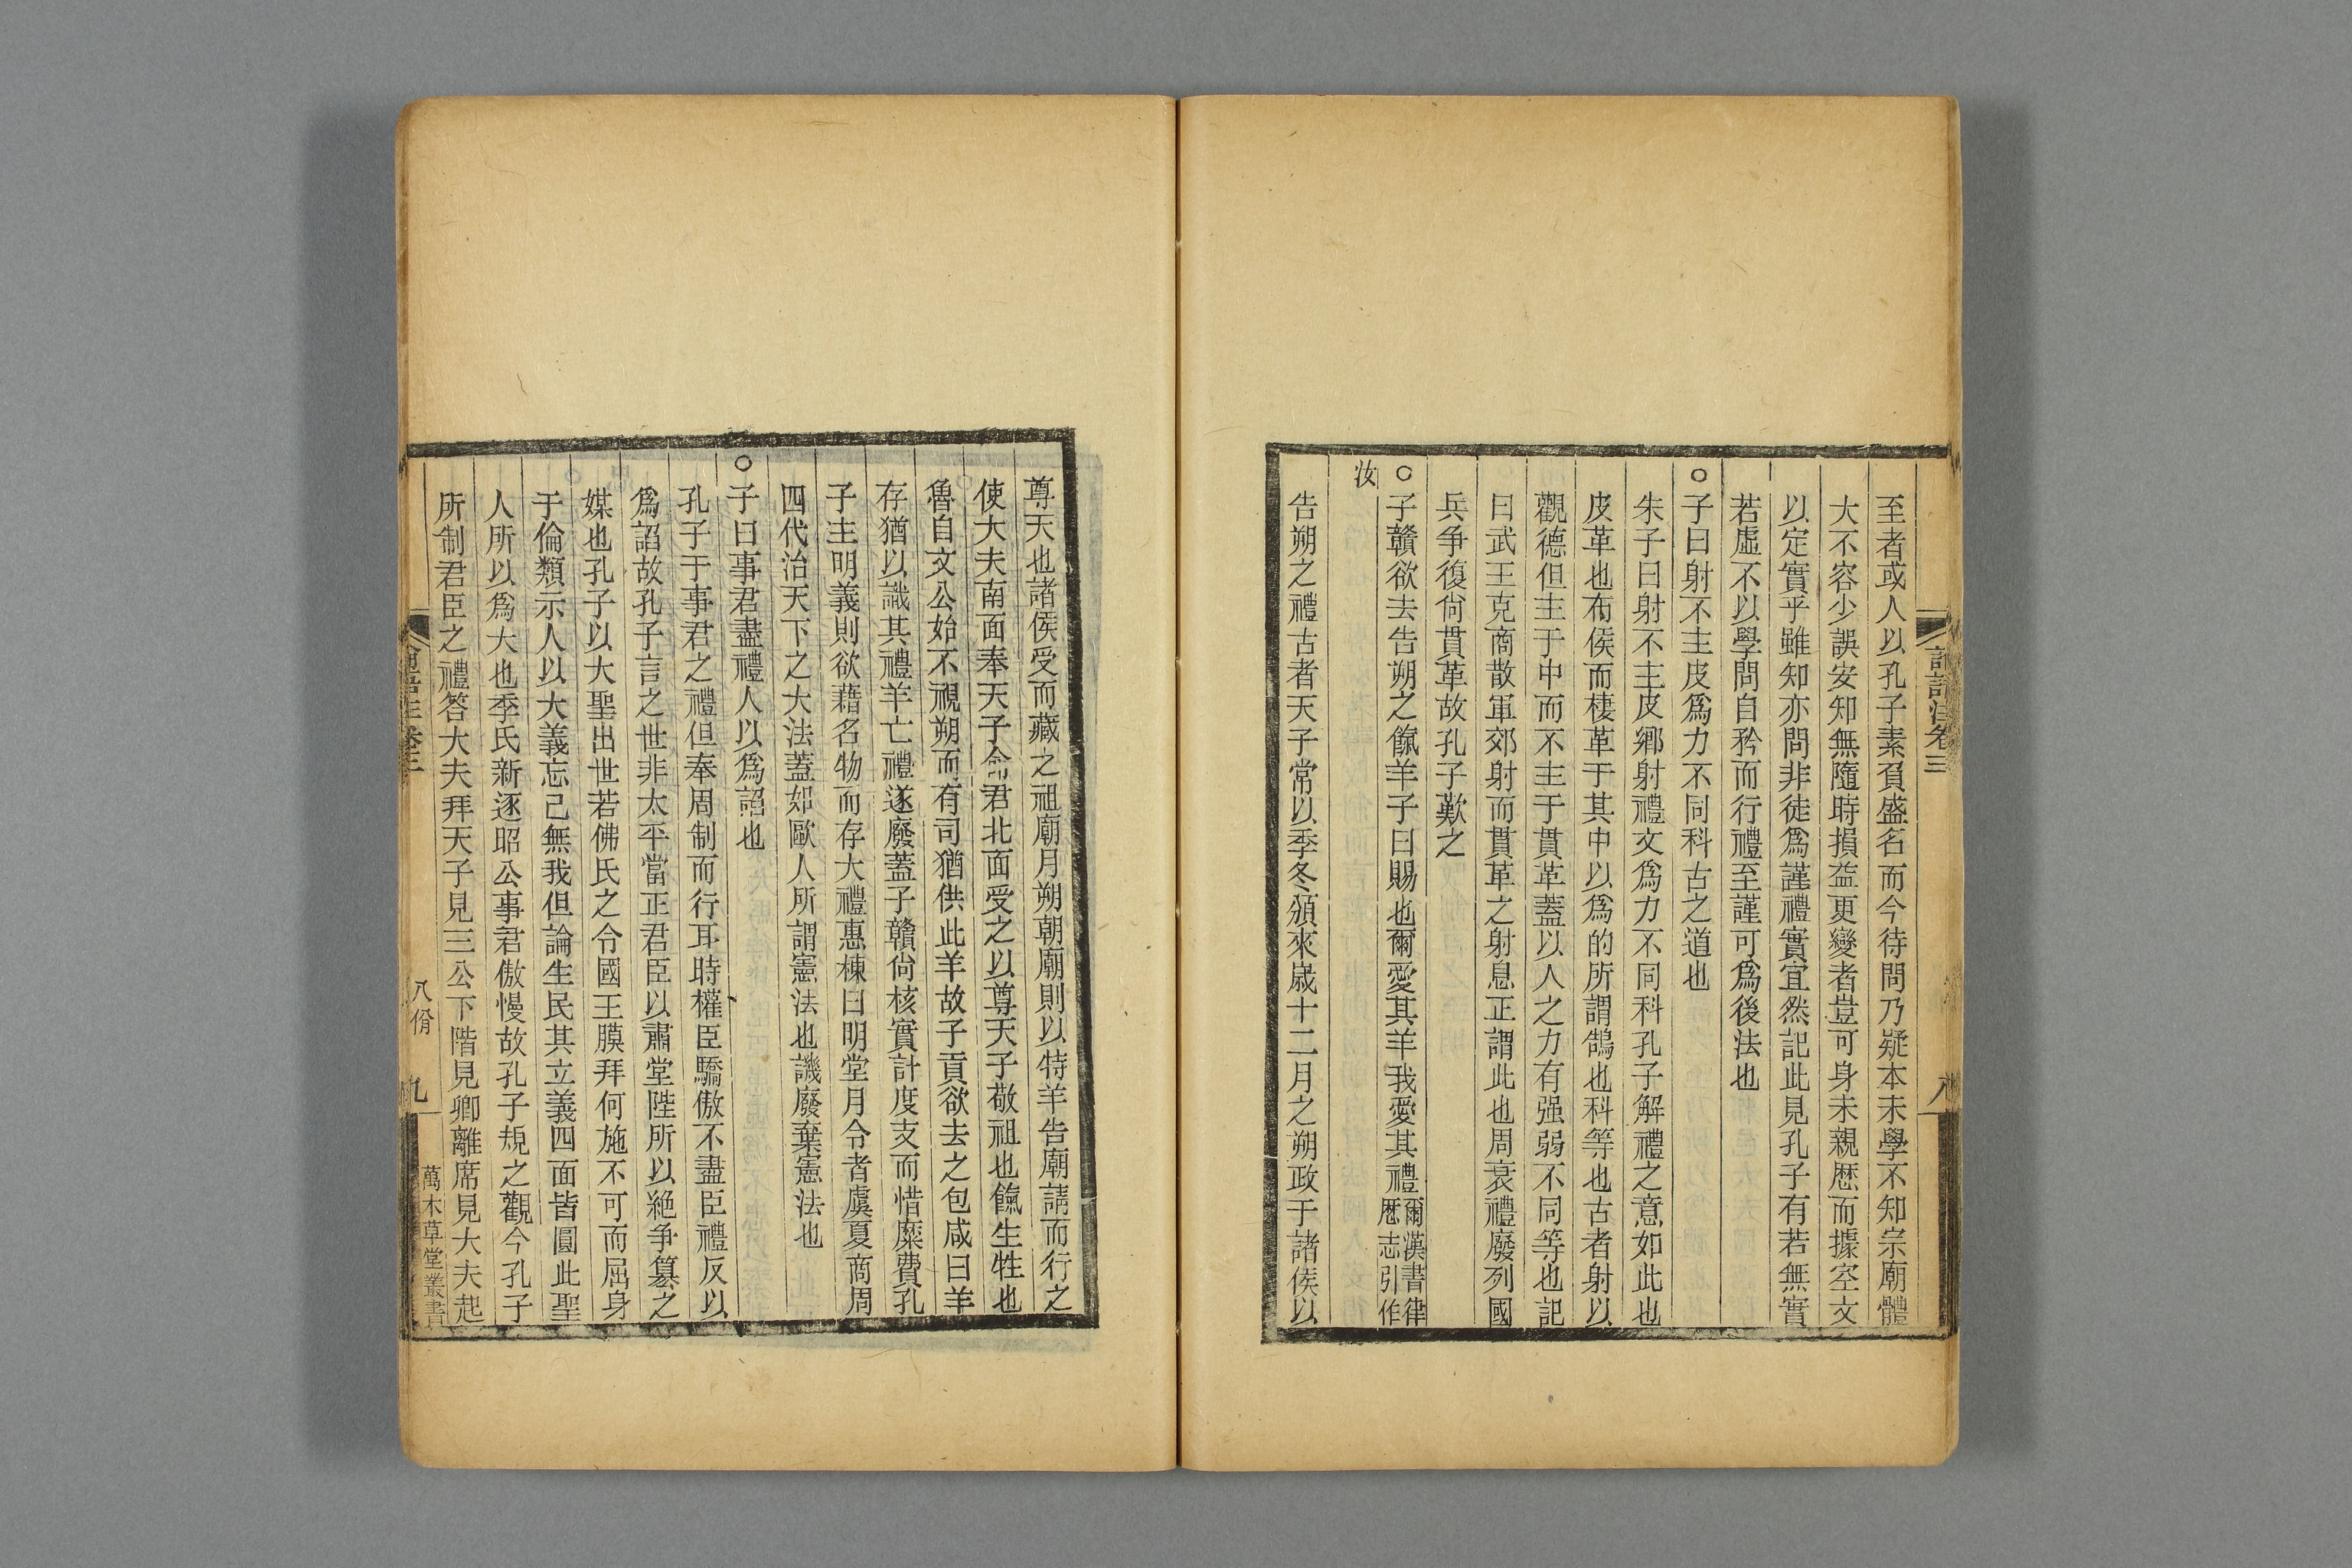 論語注卷三
八
至者或人以孔子素負盛名而今待問乃疑本未學不知宗廟體
大不容少誤安知無隨時損益更變者豈可身未親歷而據空文
以定實乎雖知亦問非徒爲謹禮實宜然記此見孔子有若無實
若虛不以學問自矜而行禮至謹可爲後法也
○子曰射不主皮爲力不同科古之道也
朱子曰射不主皮鄉射禮文爲力不同科孔子解禮之意如此也
皮革也布侯而棲革于其中以爲的所謂鵠也科等也古者射以
觀德但主于中而不主于貫革蓋以人之力有强弱不同等也記
曰武王克商散軍郊射而貫革之射息正謂此也周衰禮廢列國
兵爭復尙貫革故孔子歎之
○子贛欲去告朔之餼羊子曰賜也爾愛其羊我愛其禮爾漢書律歷志引作
汝
告朔之禮古者天子常以季冬頒來歲十二月之朔政于諸侯以
尊天也諸侯受而藏之祖廟月朔朝廟則以特羊告廟請而行之
使大夫南面奉天子命君北面受之以尊天子敬祖也餼生牲也
魯自文公始不視朔而有司猶供此羊故子貢欲去之包咸曰羊
存猶以識其禮羊亡禮遂廢蓋子贛尙核實計度支而惜糜費孔
子主明義則欲藉名物而存大禮惠棟曰明堂月令者虞夏商周
四代治天下之大法蓋如歐人所謂憲法也譏廢棄憲法也
○子曰事君盡禮人以爲諂也
孔子于事君之禮但奉周制而行耳時權臣驕傲不盡臣禮反以
爲諂故孔子言之世非太平當正君臣以肅堂陛所以絕爭篡之
媒也孔子以大聖出世若佛氏之令國王膜拜何施不可而屈身
于倫類示人以大義忘己無我但論生民其立義四面皆圓此聖
人所以爲大也季氏新逐昭公事君傲慢故孔子規之觀今孔子
所制君臣之禮答大夫拜天子見三公下階見卿離席見大夫起
論語注卷三
八佾
九
萬木草堂叢書